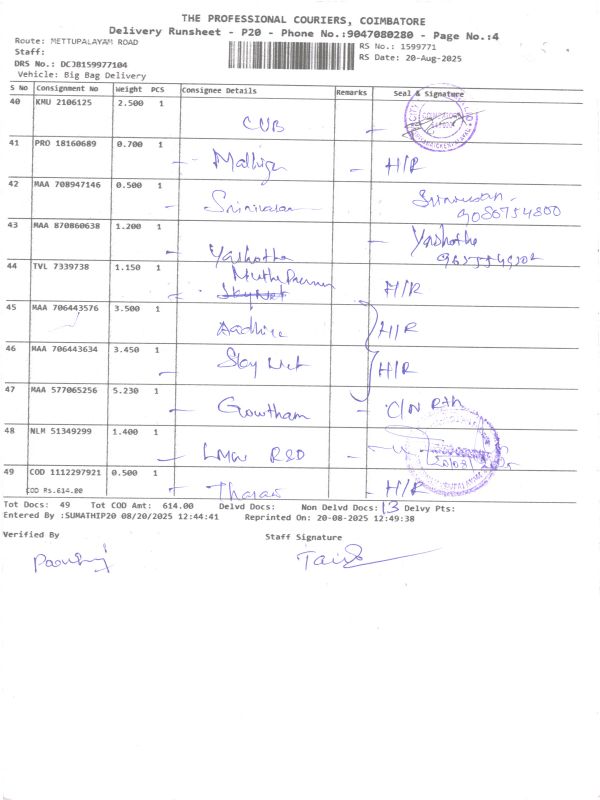 THE PROFESSIONAL COURIERS, COIMBATORE
Delivery Runsheet - P20 - Phone No.:9047080280 - Page No.:4
Route: METTUPALAYAM ROAD
RS No.: 1599771
Staff:
RS Date: 20-Aug-2025
DRS No.: DCJ8159977104
Vehicle: Big Bag Delivery
S No Consignment No Weight PCS Consignee Details Remarks Seal & Signature
40 KMU 2106125 2.500 1
CUB
41 PRO 18160689 0.700 1
H/R
42 MAA 708947146 0.500 1
Srinivasan
Srinivasan
9080754800
43 MAA 870860638 1.200 1
Yashotha
Yashotha
44 TVL 7339738 1.150 1
H/R
45 MAA 706443576 3.500 1
H/R
46 MAA 706443634 3.450 1
Sky Net H/R
47 MAA 577065256 5.230 1
Gowtham C/N Rtn
48 NLM 51349299 1.400 1
LMW
20/08/
49 COD 1112297921 0.500 1
H/R
COD Rs.614.00
Tot Docs: 49 Tot COD Amt: 614.00 Delvd Docs: Non Delvd Docs: 13 Delvy Pts:
Entered By :SUMATHIP20 08/20/2025 12:44:41 Reprinted On: 20-08-2025 12:49:38
Verified By Staff Signature